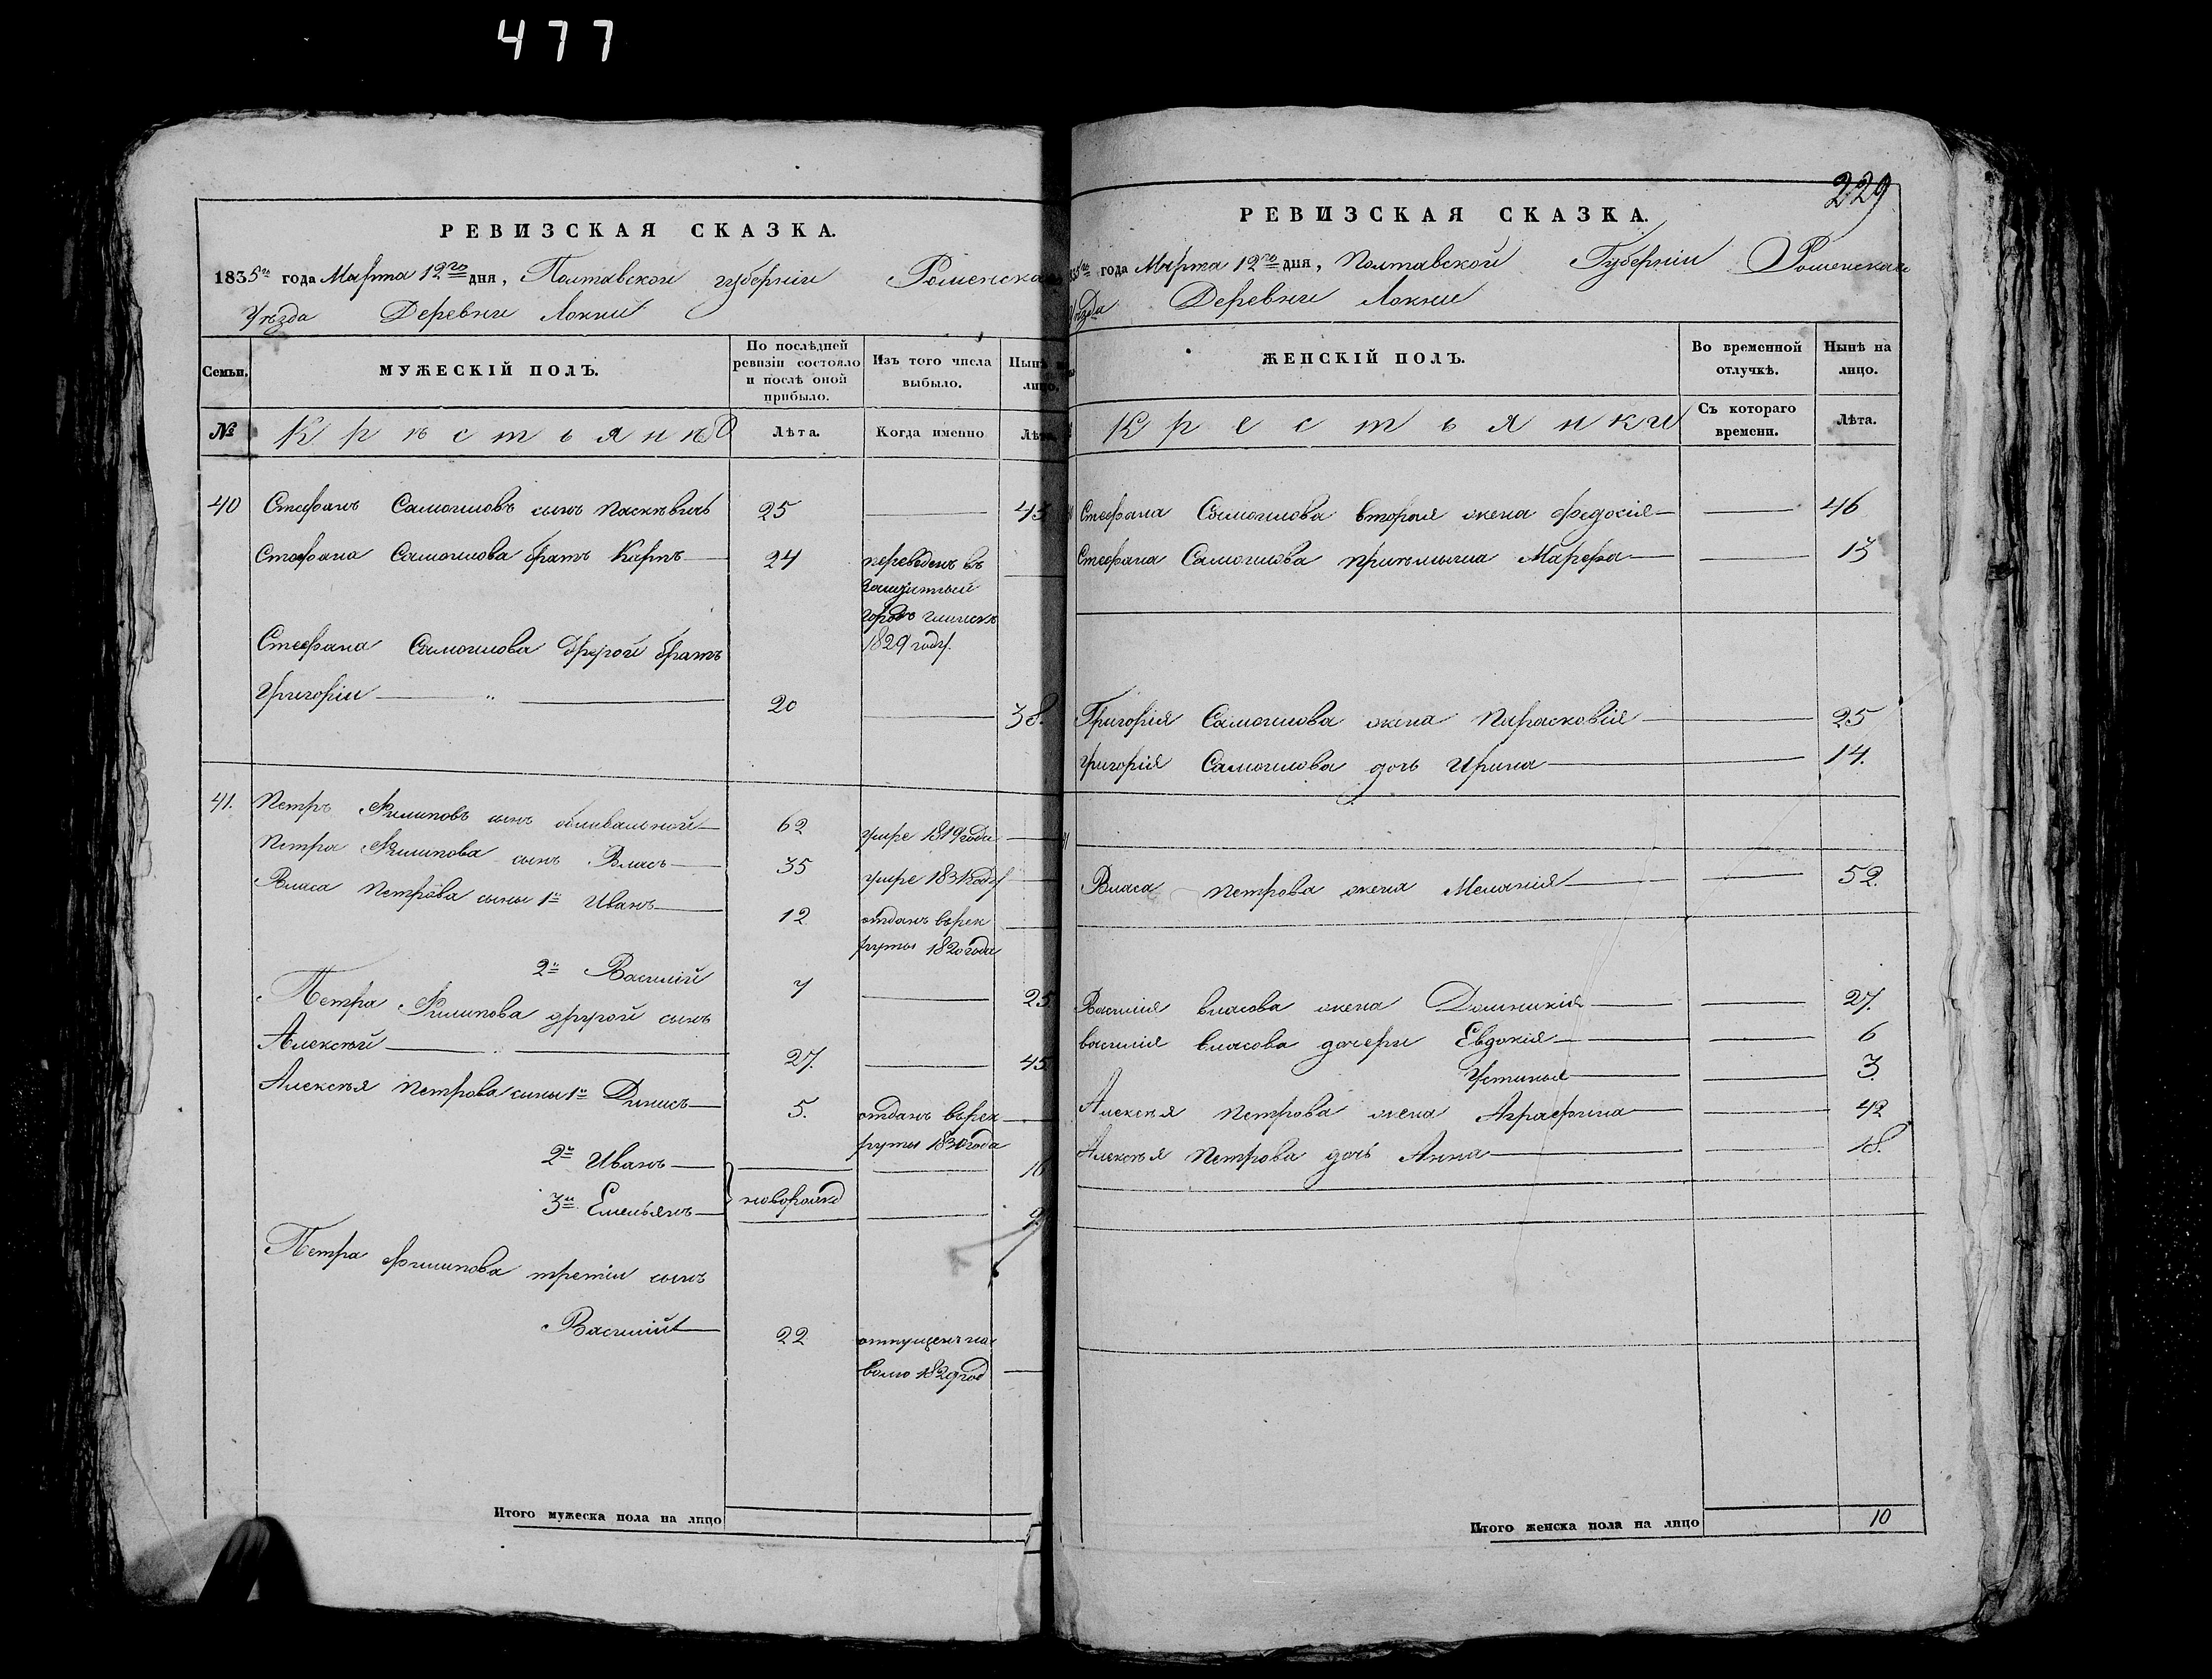 477
РЕВИЗСКАЯ СКАЗКА.
1835го года Марта 12го дня, Полтавской губерніи Роменска
Уѣзда Деревни Локни
Семьи.
МУЖЕСКІЙ ПОЛЪ.
По послѣдней
ревизіи состояло
и послѣ оной
прибыло.
Изъ того числа
выбыло.
Нынѣ
лицо.
№
Крѣстьянѣ
Лѣта.
Когда именно
Лѣта
40 Стефанъ Самоиловъ сынъ 25 45
Стефана Самоилова братъ Карпъ 24 переведенъ въ
заштатный
городъ глинскъ
1829 году.
Стефана Самоилова другой братъ
Григоріи 20 38.
41. Петръ Филиповъ сынъ 62 умре 1819 года
Петра Филипова сынъ Власъ 35 умре 1831 году
Власа Петрова сыны 1й Иванъ 12 отданъ върек
руты 1820 года
2й Василій 7 25
Петра Филипова другой сынъ
Алексѣй 27. 45.
Алексѣя Петрова сыны 1й Динисъ 5. отданъ върек
руты 1830 года
2й Иванъ 16
3й Емельянъ новорожд 9
Петра Филипова третіи сынъ
Василий 22 отпущенъ на
волю 1829 год
Итого мужеска пола на лицо
229
РЕВИЗСКАЯ СКАЗКА.
835го года Марта 12го дня, Полтавской Губерніи Роменскаго
Уѣзда Деревни Локни
ЖЕНСКІЙ ПОЛЪ.
Во временной
отлучкѣ.
Нынѣ на
лицо.
Крестьянки
Съ котораго
времени.
Лѣта.
Стефана Самоилова вторая жена Федосія 46
Стефана Самоилова Марфа 13
Григорія Самоилова жена Парасковія 25
Григорія Самоилова дочь Ирина 14.
Власа Петрова жена Меланія 52.
Василія власова жена Домникія 27.
василія власова дочери Евдокія 6
Устинья 3.
Алексѣя Петрова жена Аграфина 42
Алексѣя Петрова дочь Анна 18.
Итого женска пола на лицо 10